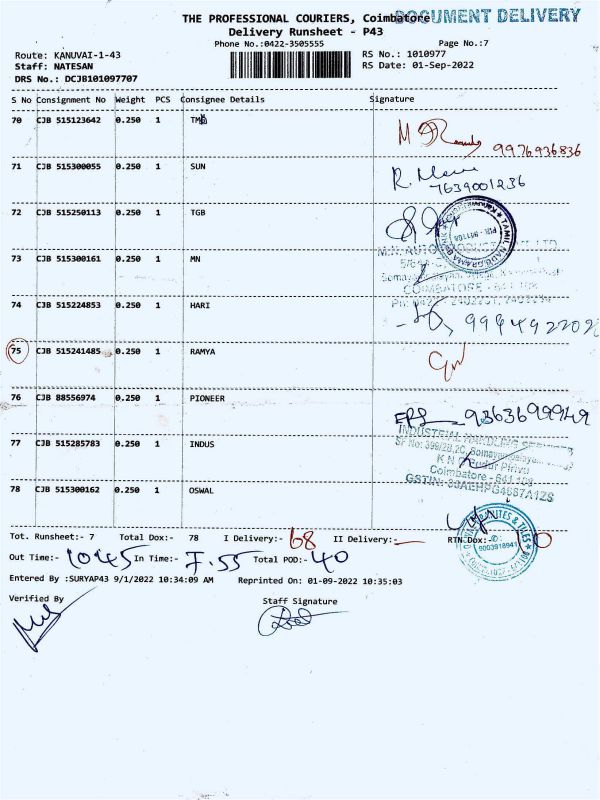 THE PROFESSIONAL COURIERS, Coimbatore
DOCUMENT DELIVERY
Delivery Runsheet - P43
Phone No.:0422-3505555
Page No.:7
Route: KANUVAI-1-43
RS No.: 1010977
Staff: NATESAN
RS Date: 01-Sep-2022
DRS No.: DCJB101097707
S No Consignment No Weight PCS Consignee Details Signature
70 CJB 515123642 0.250 1
9976936836
71 CJB 515300055 0.250 1 SUN
7639001236
72 CJB 515250113 0.250 1 TGB
73 CJB 515300161 0.250 1 MN
COIMBATORE - 641 108
74 CJB 515224853 0.250 1 HARI
75 CJB 515241485 0.250 1 RAMYA
76 CJB 88556974 0.250 1 PIONEER
9363699949
77 CJB 515285783 0.250 1 INDUS
Coimbatore - 641 108
78 CJB 515300162 0.250 1 OSWAL
Tot. Runsheet:- 7 Total Dox:- 78 I Delivery:- 68 II Delivery:- RTN Dox: 10
Out Time:- 10.45 In Time:- 7.55 Total POD:- 40
Entered By :SURYAP43 9/1/2022 10:34:09 AM Reprinted On: 01-09-2022 10:35:03
Verified By Staff Signature